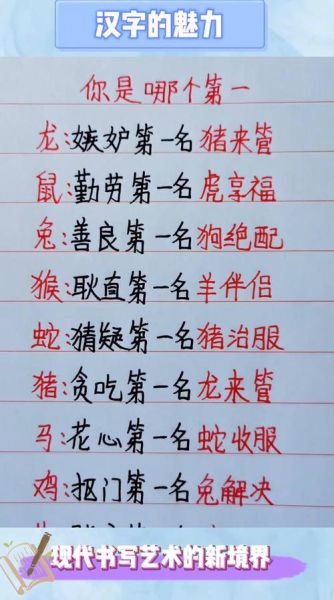 汉字的魅力
你是哪个第一
龙:嫉妒第一名猪来管
鼠:勤劳第一名虎享福
兔:善良第一名狗绝配
猴:耿直第一名羊伴侣
蛇:猜疑第一名猪治服
猪:贪吃第一名龙来管
马:花心第一名蛇收服
鸡:抠门第一名兔解决
现代书写艺术的新境界